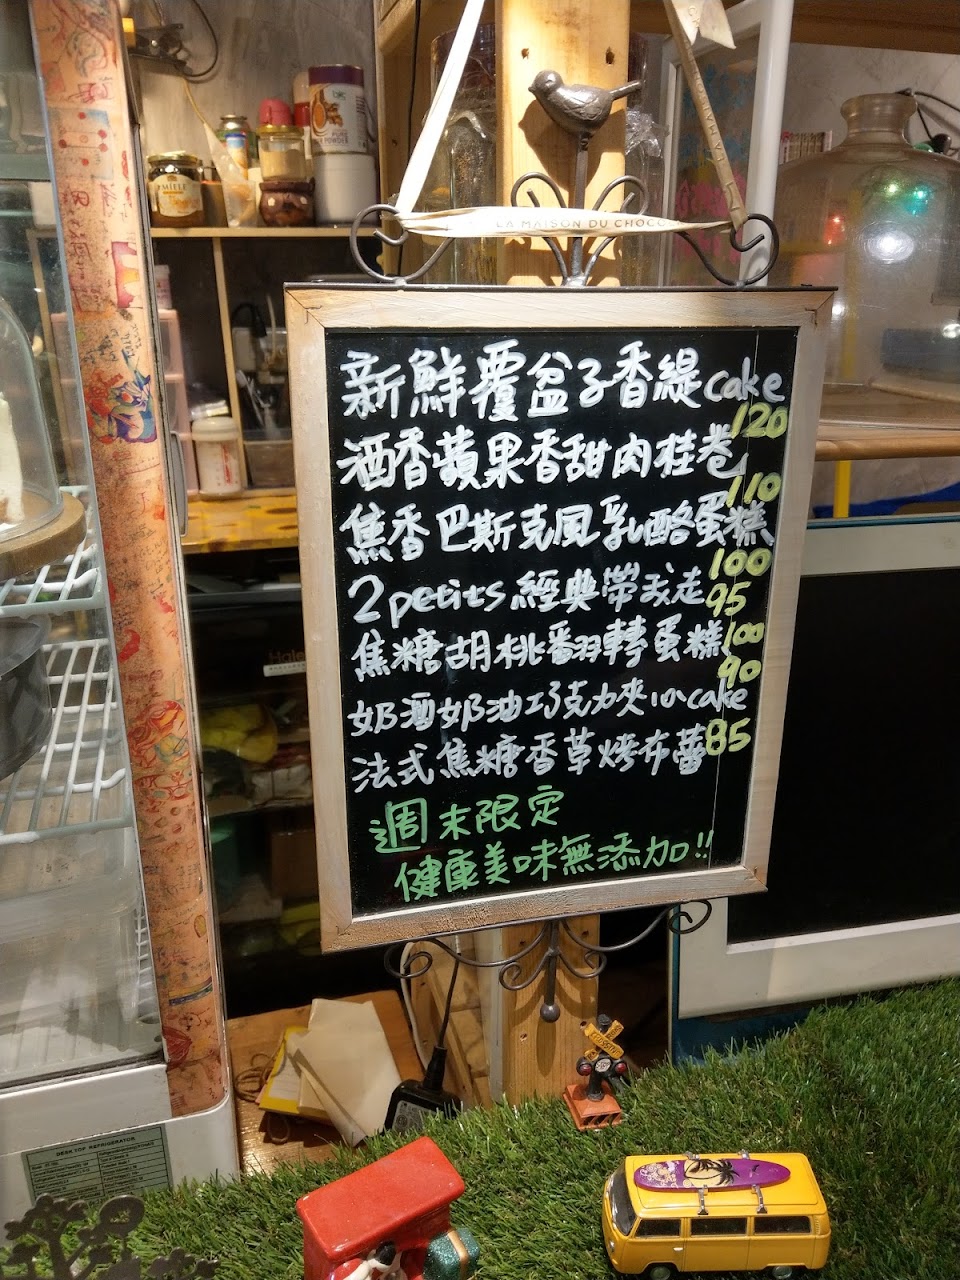 LA MAISON DU CHOCO
MIELE
新鮮覆盆子香緹cake
120
酒香蘋果香甜肉桂卷
110
焦香巴斯克風乳酪蛋糕
100
2petits經典帶我走
95
焦糖胡桃翻轉蛋糕
100
90
奶酒奶油巧克力夾心cake
法式焦糖香草烤布蕾
85
週末限定
健康美味無添加!!
DESK TOP REFRIGERATOR